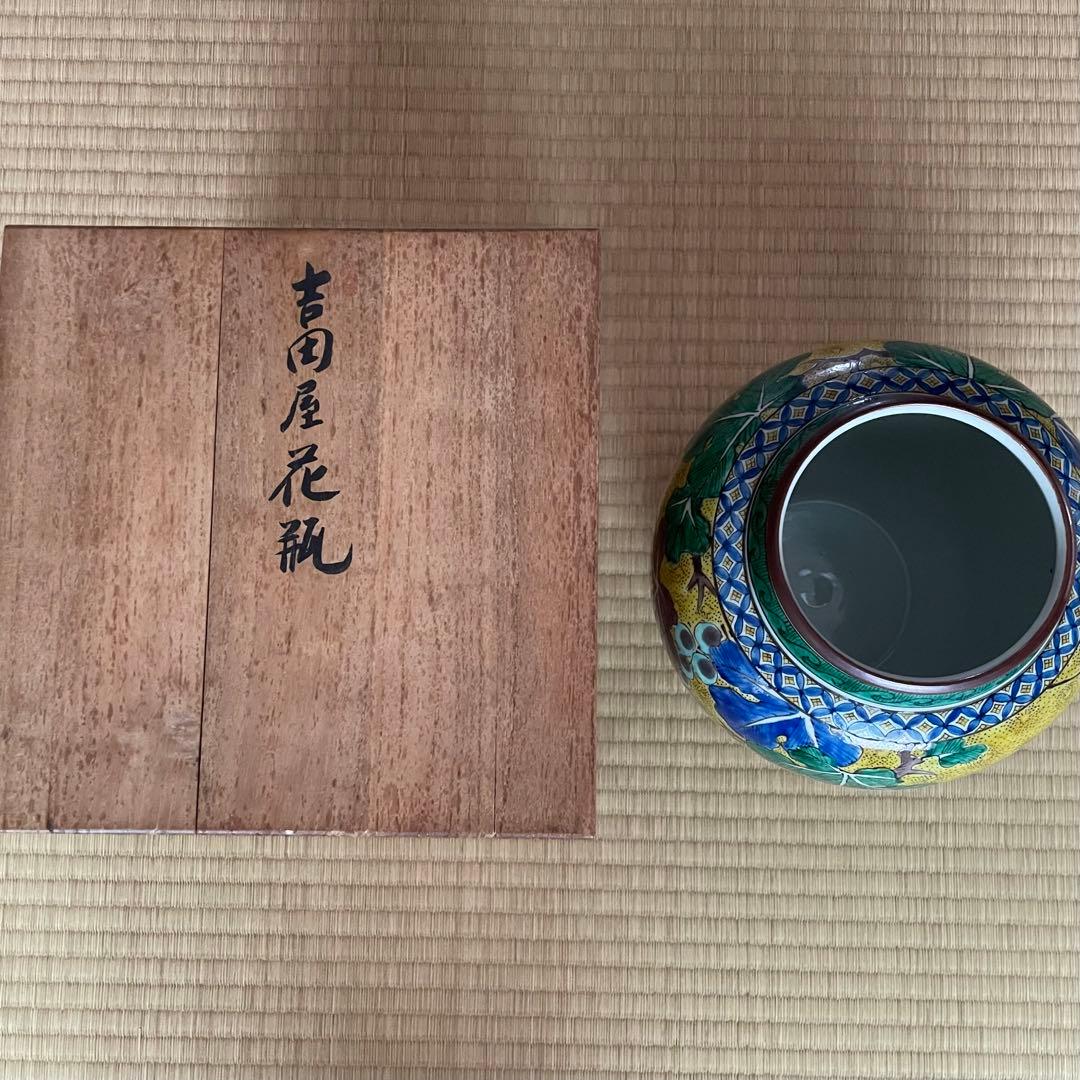 吉田屋花瓶